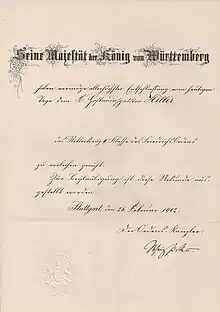 Seine Majestät der König von Württemberg
haben vermöge allerhöchster Entschließung vom heutigen
Tage dem
Hiller
das Ritterkreuz Klasse des Friedrichs Ordens
zu verleihen geruht.
Zur Beglaubigung ist diese Urkunde aus-
gestellt worden
Stuttgart, den 25. Februar 1912.
Der Ordens Kanzler